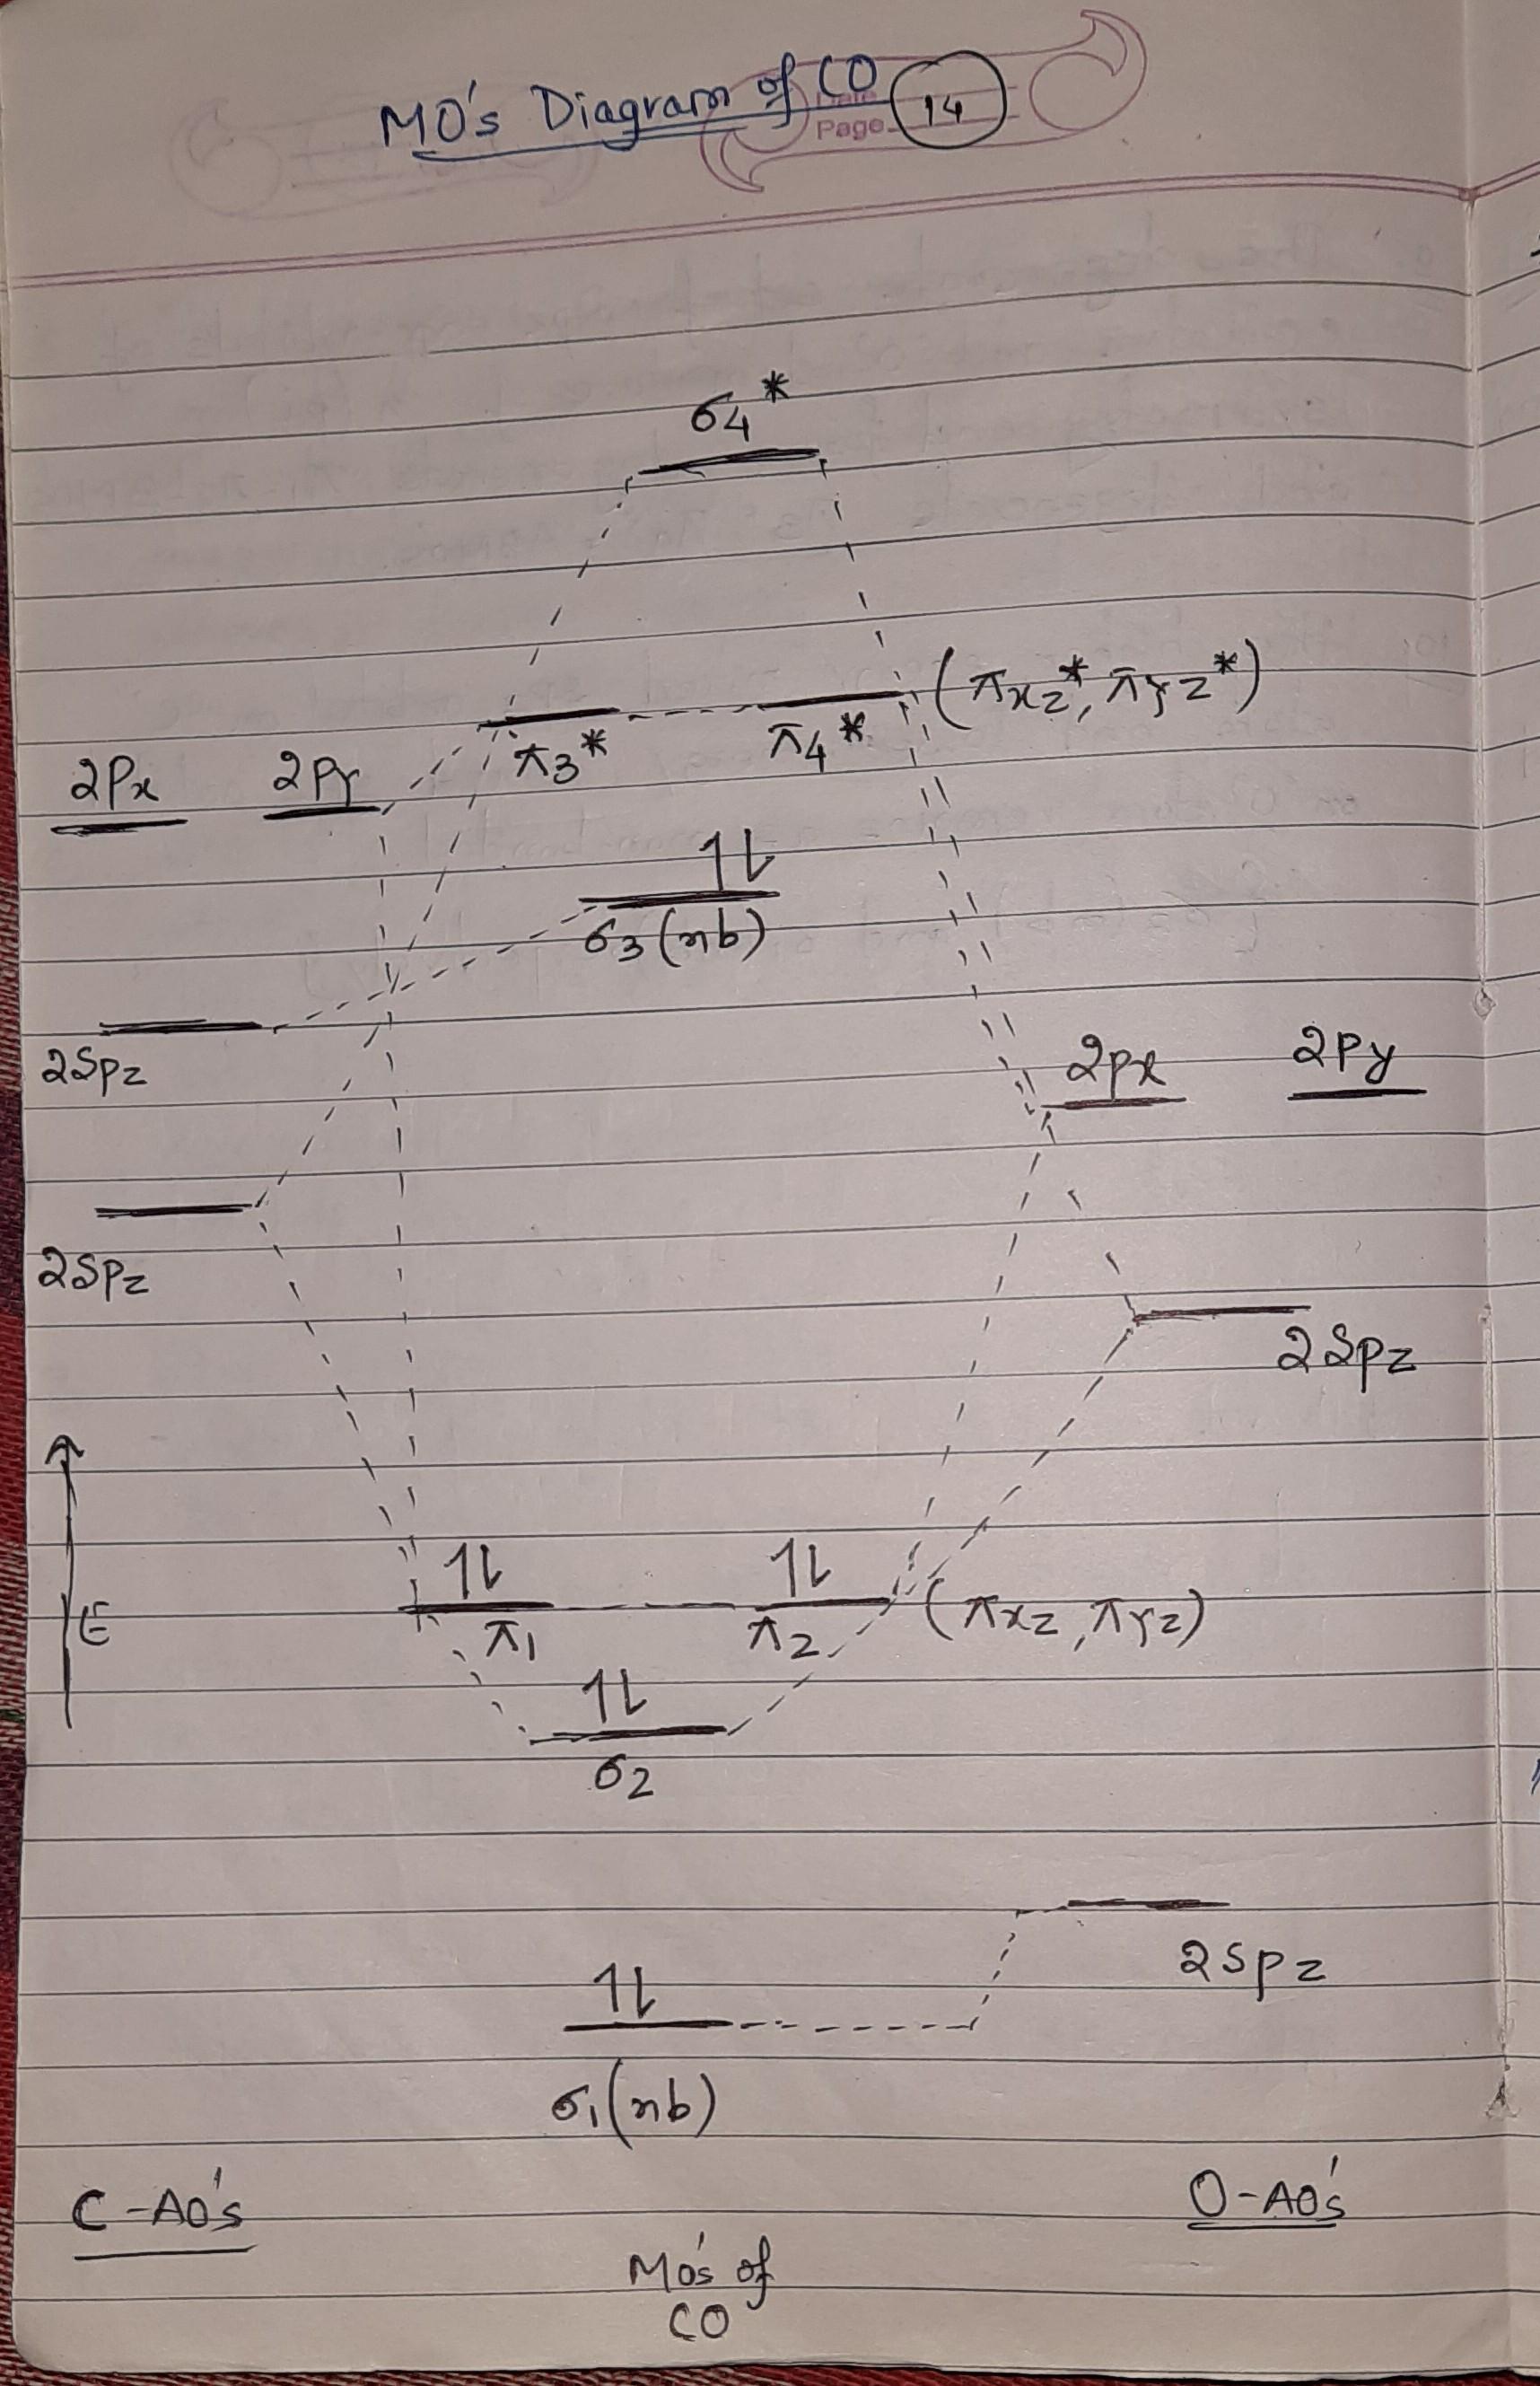 MO's Diagram of CO
Date
Page 14
σ4*
(πxz*, πyz*)
π3* π4*
2Px 2Py
1⇂
σ3(nb)
2Spz
2px 2py
2Spz
2Spz
E
1⇂ 1⇂
π1 π2 (πxz, πyz)
1⇂
σ2
2spz
1⇂
σ1(nb)
C-AO's
O-AO's
MO's of
CO